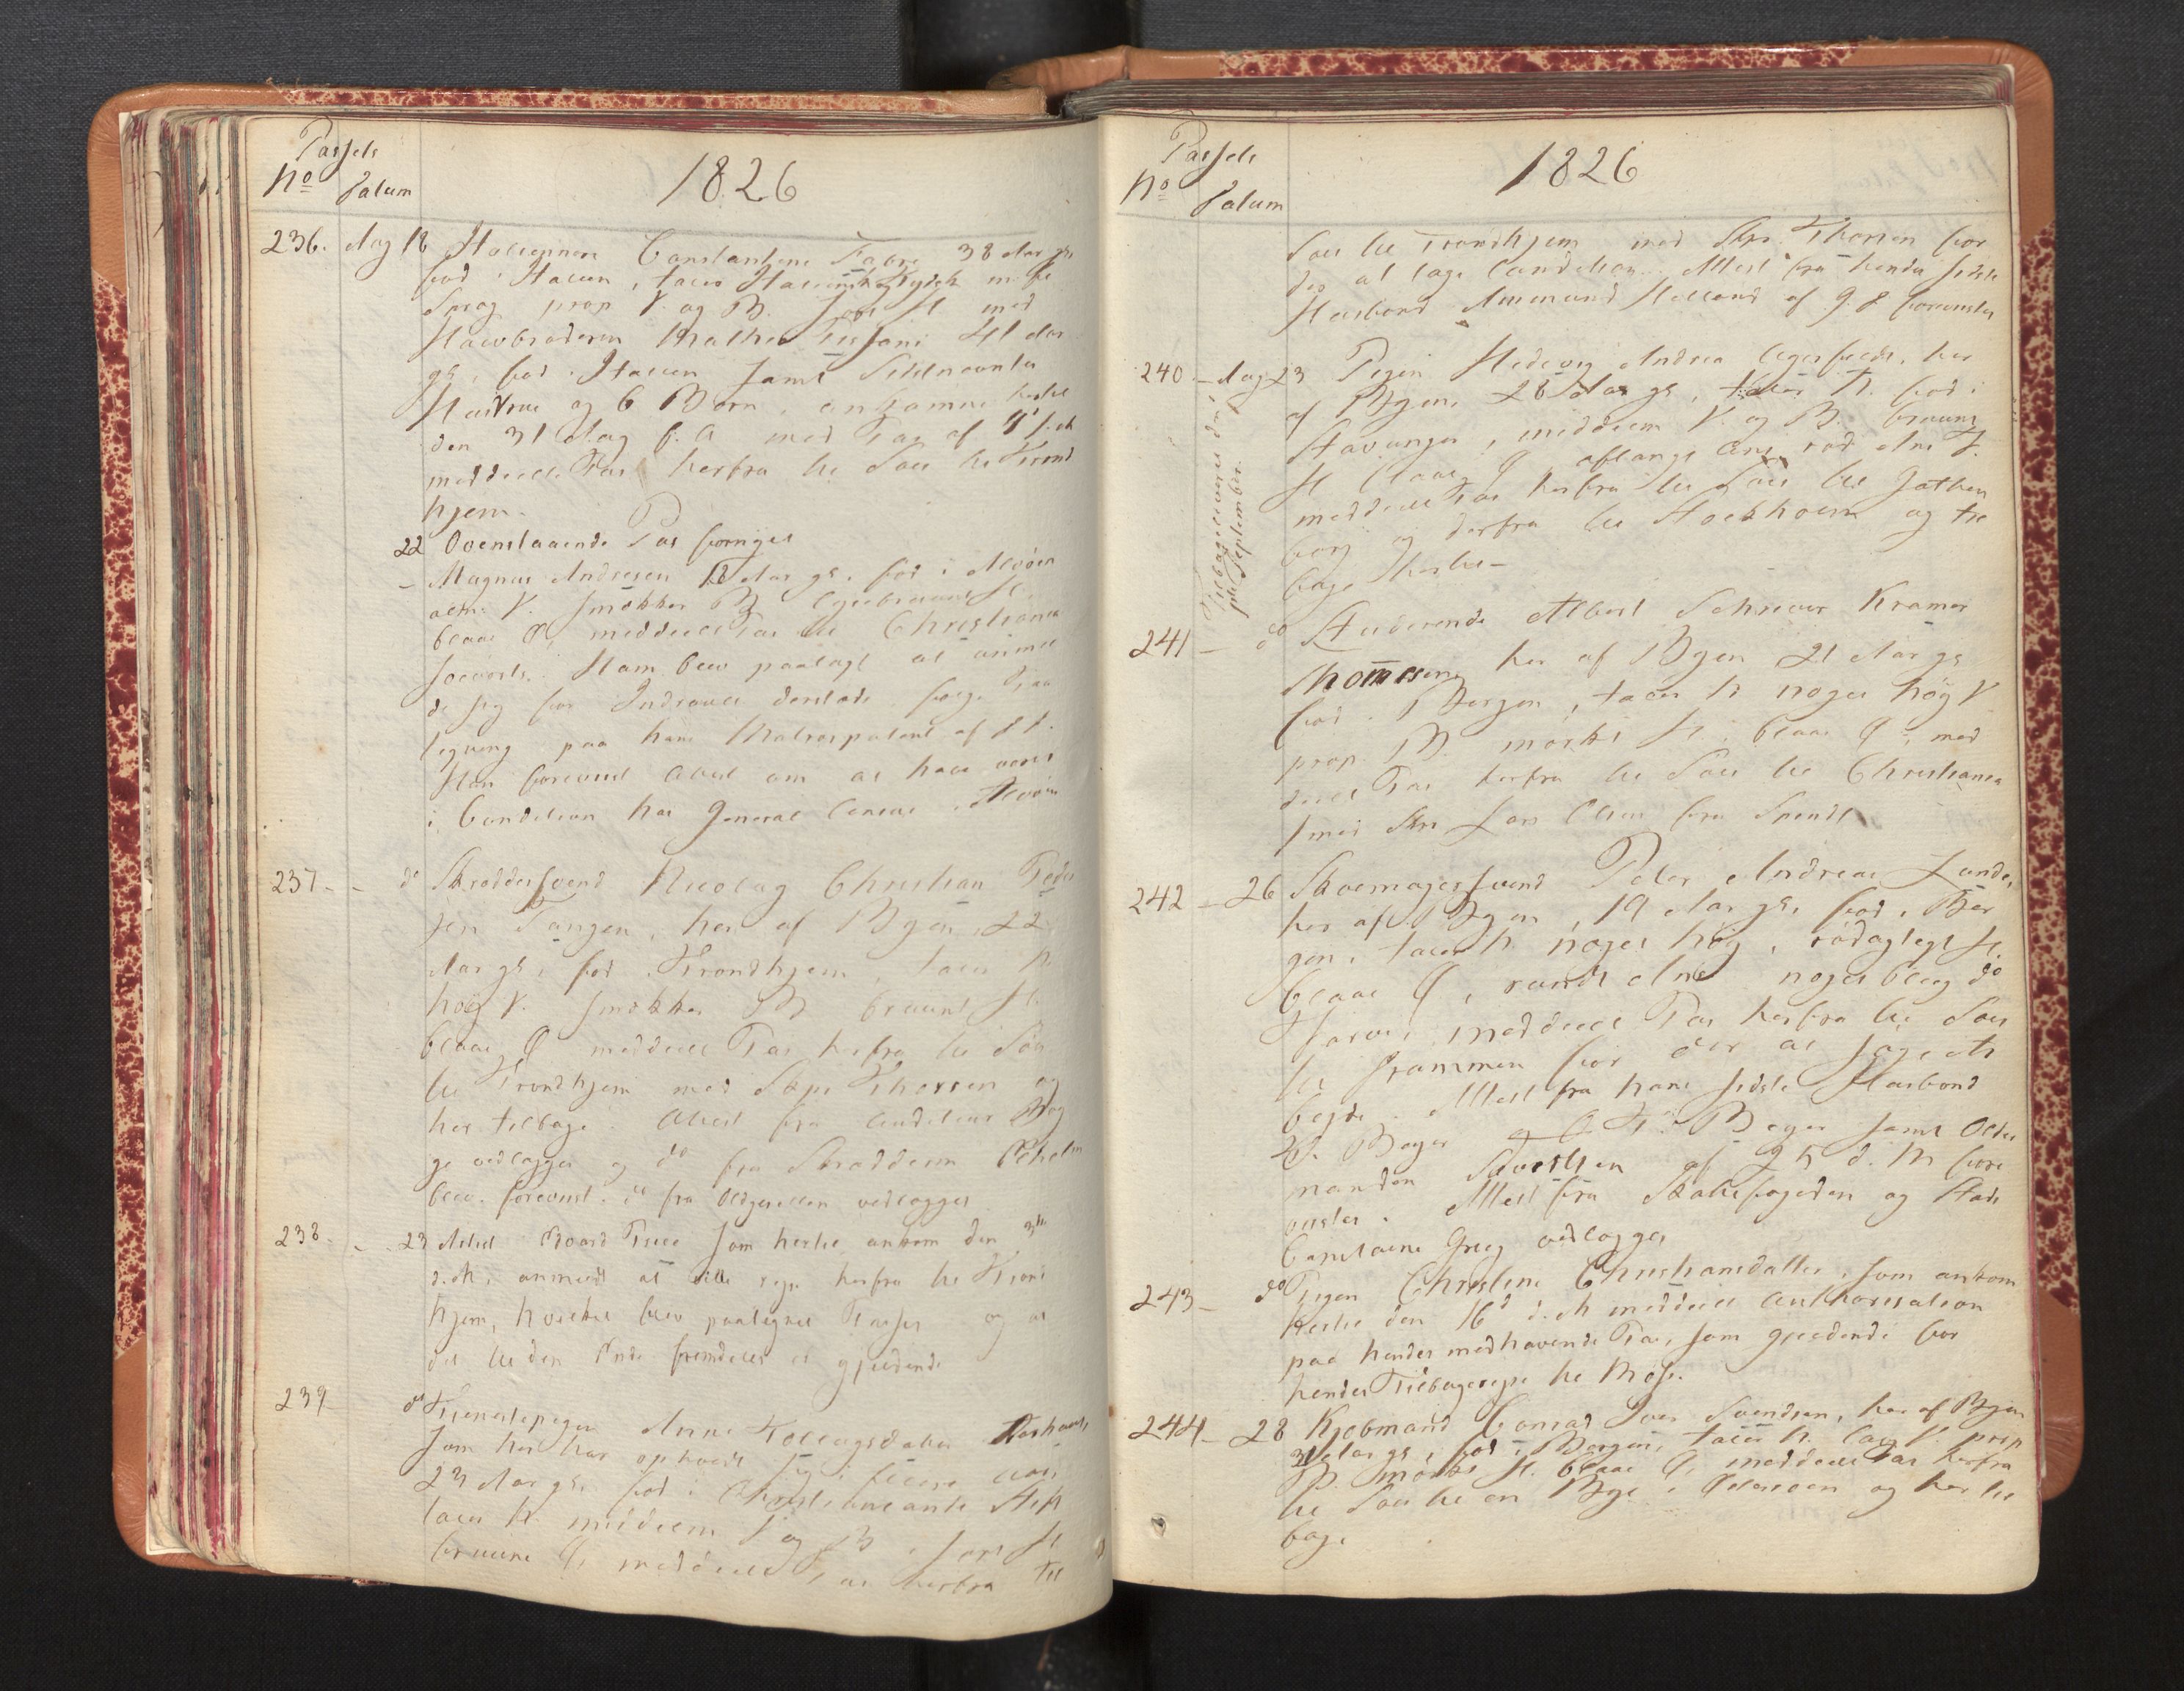 Passets
No Datum
1826
236. Aug 18 Italieneren Constantino Fabri 38 Aar gl.
fød i Italien, taler Italiensk og Tydsk
Sprog prop V. og B. sort H med
Svogeren
gl, fød i Italien samt
Hustrue og 6 Børn, ankomne hertil
den 31 Aug f. A med Pas af
meddeelt Pas herfra til Søes til Trond
hjem.
22 Ovenstaaende Pas fornyet
- Magnus Andresen 18 Aar gl. fød i Alvøen
alm: V. smekker B lysebruunt H.
blaae Ø, meddeelt Pas til Christiania
søeverts. Ham blev paalagt at anmel
de sig for Indroull: derstæds ifølge Paa
tegning paa hans Matrospatent af d. D.
Han foreviiste Attest om at have været
i Condition hos General Consul
237 - - do Skrædersvend Nicolay Christian Peder
sen Tangen, her af Byen, 22
Aar gl, fød i Trondhjem, taler N
høy V. smekker B bruunt H
blaae Ø meddeelt Pas herfra til Søes
til Trondhjem med Skpr Thorsen og
her tilbage. Attest fra
ge vedlagges og do fra Skræderen
blev forevist. do fra vedlægges
238 - - 23 Baard som hertil ankom den 3de
d.M, anmeldt at ville reyse herfra til Trond
hjem, hvilket blev paategnet Passet og at
det til den Ende fremdeles er gjeldende
239 do Tienestepigen Anne Tollagsdatter
som her har opholdt sig i fleere Aar,
23 Aar gl, fød i Christiansands Stift
taler N. middelm V og B, sort H
bruune Ø, meddeelt Pas herfra til
Passets
No Datum
1826
Søes til Trondhjem med Skpr. Thorsen for
der at tage Condition. Attest fra hendes sidste
Huusbond Amund Helland af G. D forevistes
240 - Aug 23 Pigen Hedevig Andrea her
af Byen, 28 Aar gl, taler N. fød i
Stavanger, middelm V. og B. bruunt
H blaae Ø, aflangt Ans. rød
meddeelt Pas herfra til Søes til Gothen
borg og derfra til Stockholm og til
bage hertil -
Tilbageleveret den
September.
241 - do Studerende Albert Schreuer Kramer
Thomesen her af Byen 21 Aar gl
fød i Bergen, taler N noget høy V
prop B. mørkt H. blaae Ø, med
deelt Pas herfra til Søes til Christiania
med Skr Lars Olsen fra
242 - 26 Skoemagersvend Peder Andreas Lunde,
her af Byen, 19 Aar gl, fød i Ber
gen, taler N. noget høy, rødagtigt H.
blaae Ø, rundt Ans noget bleeg do
Farve, meddeelt Pas herfra til Søes
til Drammen for der at søge Ar
beyde. Attest fra hans sidste Huusbond
Beyer samt Older
manden Sivertsen af 25 d. M fore
vistes. Attest fra Skattefogeden og Stads
Capitaine Grieg vedlægges
243 - do Pigen Christine Christiansdatter, som ankom
hertil den 16d d. M meddeelt Authorisation
paa hendes medhavende Pas, som gjeldende for
hendes Tilbagereyse til Moss.
244 - 28 Kjøbmand Conrad Iver Svendsen, her af Byen
31 Aar gl, fød i Bergen, taler N. lav V. prop
B. mørkt H. blaae Ø, meddeelt Pas herfra
til Søes til en Bye i Østersøen og her til
bage.